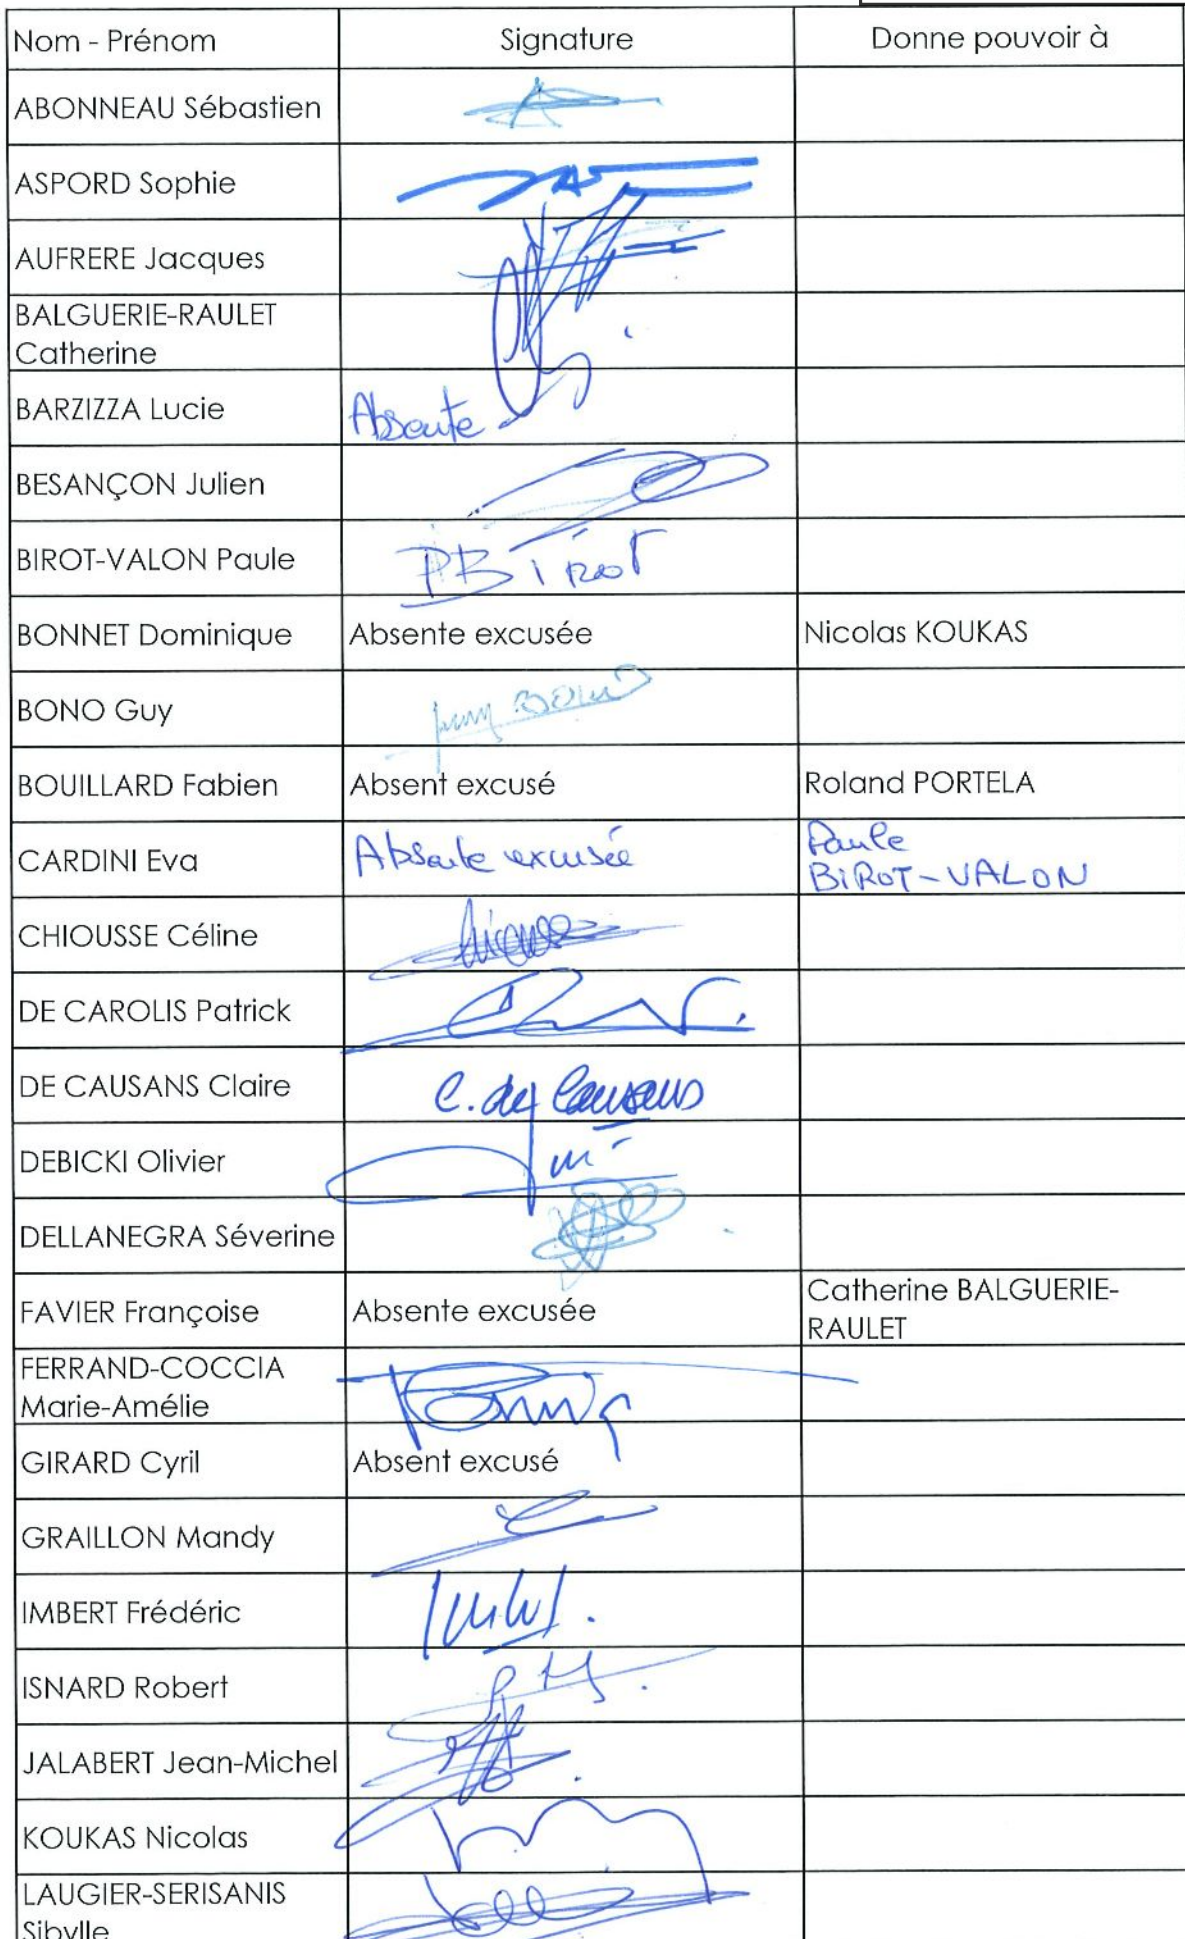 Nom - Prénom Signature Donne pouvoir à
ABONNEAU Sébastien
ASPORD Sophie
AUFRERE Jacques
BALGUERIE-RAULET
Catherine
BARZIZZA Lucie Absente
BESANÇON Julien
BIROT-VALON Paule PBirot
BONNET Dominique Absente excusée Nicolas KOUKAS
BONO Guy
BOUILLARD Fabien Absent excusé Roland PORTELA
CARDINI Eva Absente excusée Paule
BIROT-VALON
CHIOUSSE Céline
DE CAROLIS Patrick
DE CAUSANS Claire C. de Causans
DEBICKI Olivier
DELLANEGRA Séverine
FAVIER Françoise Absente excusée Catherine BALGUERIE-
RAULET
FERRAND-COCCIA
Marie-Amélie
GIRARD Cyril Absent excusé
GRAILLON Mandy
IMBERT Frédéric
ISNARD Robert
JALABERT Jean-Michel
KOUKAS Nicolas
LAUGIER-SERISANIS
Sibylle